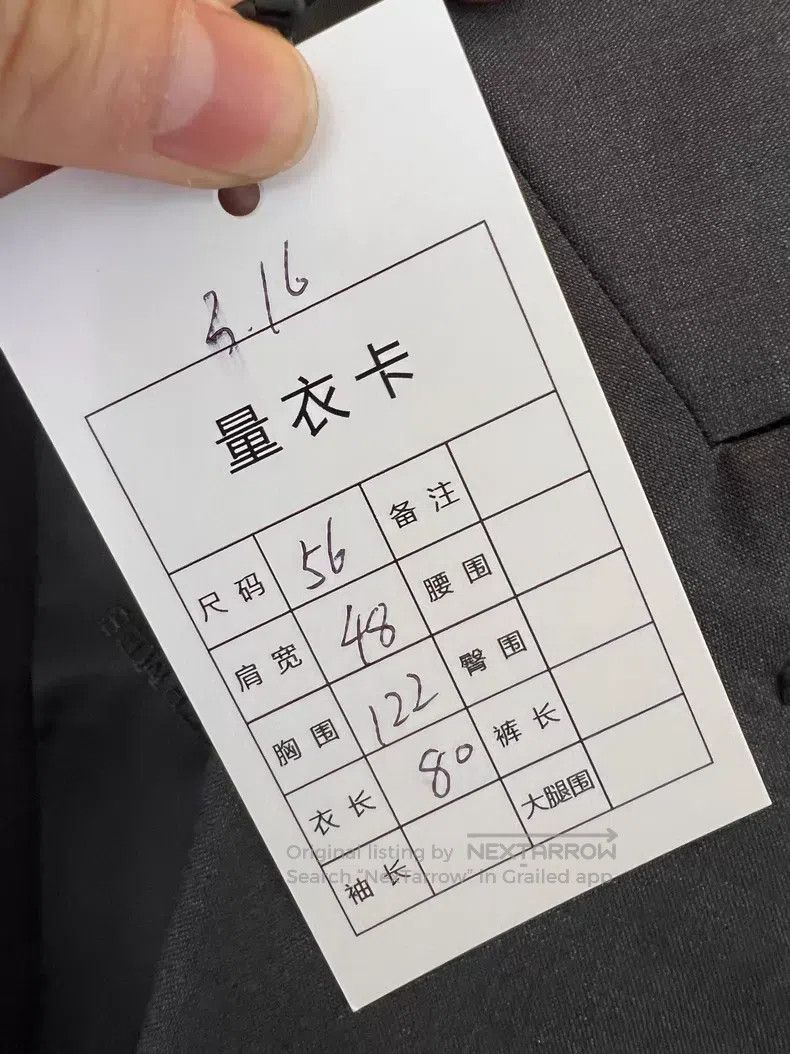 3.16
量衣卡
尺码 56 备注
肩宽 48 腰围
胸围 122 臀围
衣长 80 裤长
袖长 大腿围
Original listing by NEXTARROW
Search "NexTarrow" in Grailed app